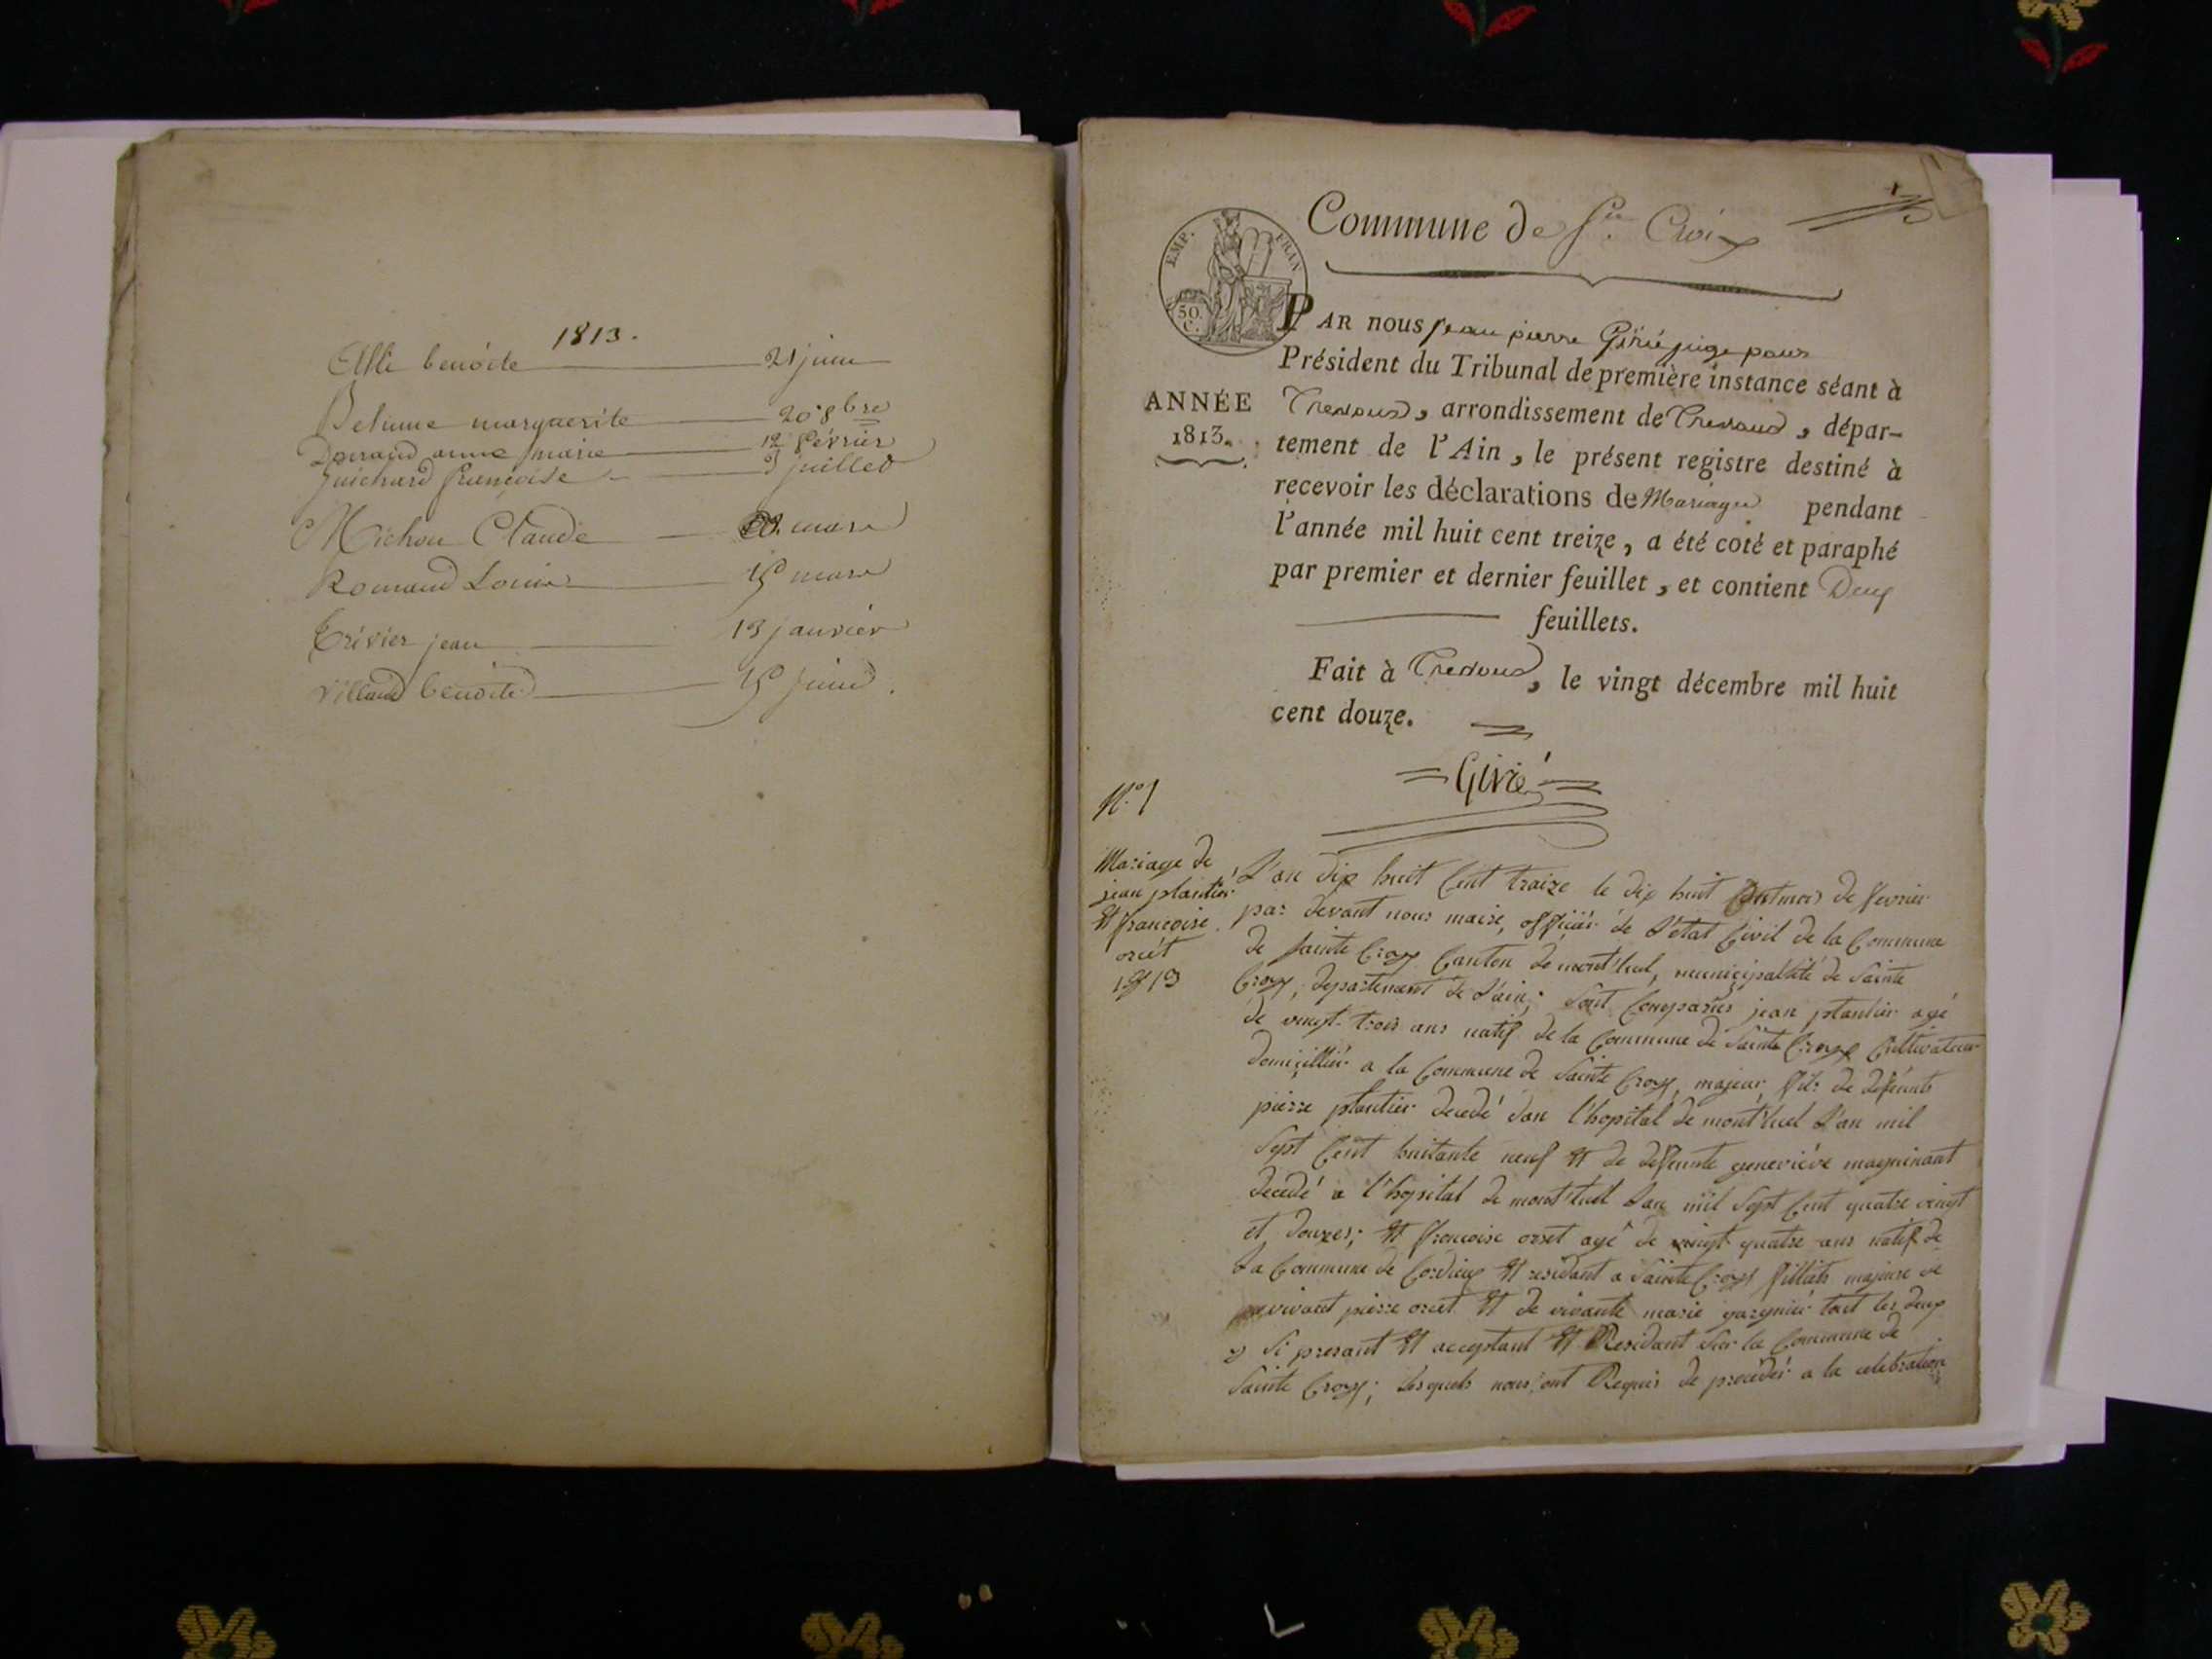 1813.
benoite 21 juin
marguerite 20 8bre
anne marie 12 février
Guichard françoise 3 juillet
Michon Claude mars
Romand Louise 15 mars
Trivier jean 13 janvier
Villand benoite 15 juin
Commune de Ste. Croix
EMP. FRAN
50. C.
PAR nous jean pierre Girié juge pour
Président du Tribunal de première instance séant à
ANNÉE
1813.
Trevoux, arrondissement de Trevoux, dépar-
tement de l'Ain, le présent registre destiné à
recevoir les déclarations de Mariages pendant
l'année mil huit cent treize, a été coté et paraphé
par premier et dernier feuillet, et contient Deux
feuillets.
Fait à Trevoux, le vingt décembre mil huit
cent douze.
Girié
N.º 1
Mariage de
jean plantier
Et françoise
orcet
1813
L'an dix huit Cent traize le dix huit du mois de fevrier
par devant nous maire, officier de L'etat Civil de la Commune
de Sainte Croix Canton de montluel, municipalité de Sainte
Croix, departement de L'ain; Sont Comparus jean plantier agé
de vingt-trois ans natif de la Commune de Sainte Croix Cultivateur
domicillié a la Commune de Sainte Croix, majeur, fils de defeunts
pierre plantier decedé dan l'hopital de montluel L'an mil
Sept Cent huitante neuf Et de defeunte geneviéve magninant
decedé a l'hopital de montluel L'an mil Sept Cent quatre vingt
et douzes; Et francoise orset agé de vingt quatre ans natif de
La Commune de Cordieux Et residant a Sainte Croix fillats majeure de
vivant pierre orcet Et de vivante marie garynier tout les deux
Si presant Et acceptant Et Residant Sur la Commune de
Sainte Croix; Lesquels nous ont Requis de procéder a la celebration